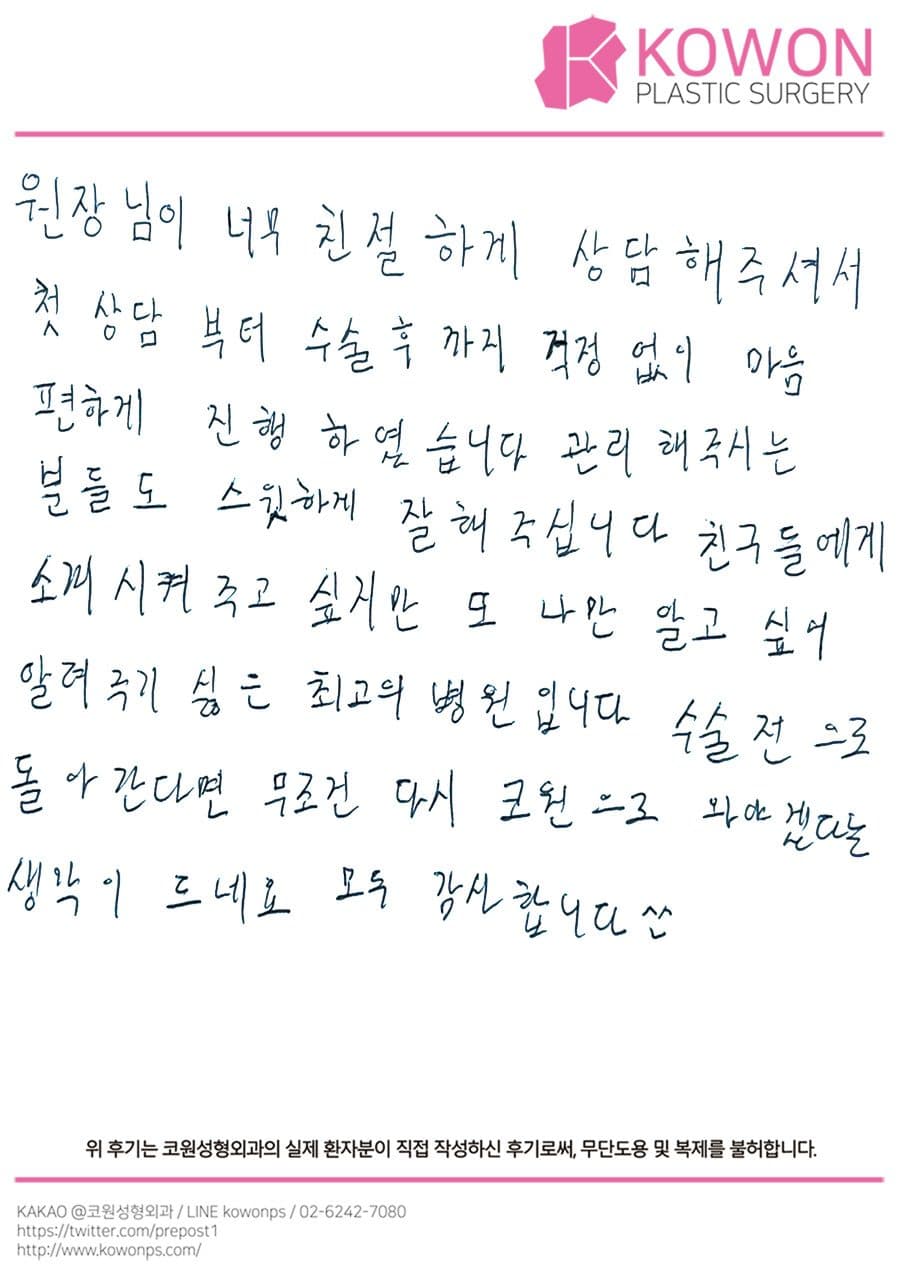 KOWON
PLASTIC SURGERY
원장님이 너무 친절하게 상담해주셔서
첫 상담 부터 수술후 까지 걱정 없이 마음
편하게 진행 하였습니다 관리 해주시는
분들도 스윗하게 잘해주십니다 친구들에게
소개시켜주고 싶지만 또 나만 알고 싶어
알려주기 싫은 최고의 병원입니다 수술전으로
돌아간다면 무조건 다시 코원으로 와야겠다는
생각이 드네요 모두 감사합니다 ^^
위 후기는 코원성형외과의 실제 환자분이 직접 작성하신 후기로써, 무단도용 및 복제를 불허합니다.
KAKAO @코원성형외과 / LINE kowonps / 02-6242-7080
https://twitter.com/prepost1
http://www.kowonps.com/